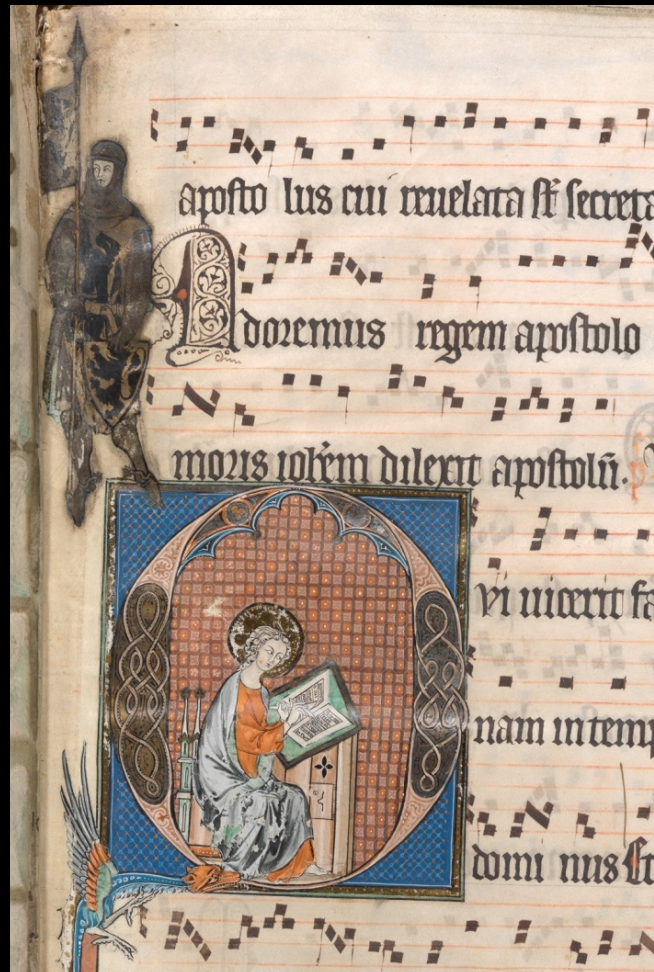 aposto lus cui reuelata st secreta
Adoremus regem apostolo
moris iohem dilexit apostolu.
Qui uicerit fa
nam in temp
domi nus Et